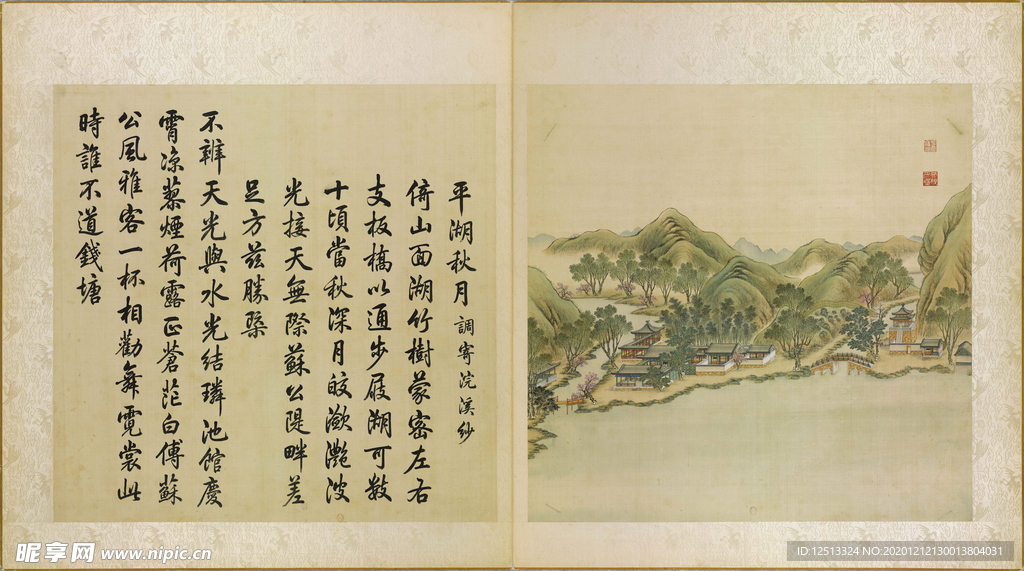 平湖秋月 調寄浣溪紗
倚山面湖竹樹蒙密左右
支板橋以通步屐湖可數
十頃當秋深月皎瀲灧波
光接天無際蘇公隄畔差
足方兹勝槩
不辨天光與水光結璘池館慶
霄凉蓼煙荷露正蒼茫白傅蘇
公風雅客一杯相勸舞霓裳此
時誰不道錢塘
昵享网 www.nipic.cn
ID:12513324 NO:20201212130013804031